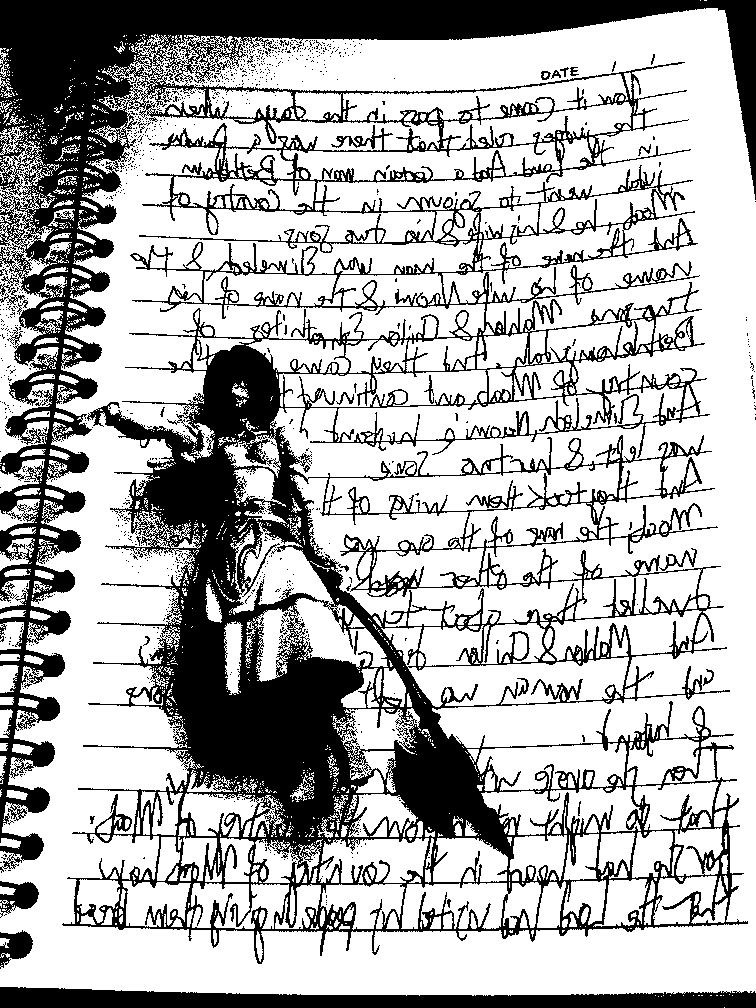 DATE / /
Now it came to pass in the days when
the judges ruled that there was a famine
in the land. And a certain man of Bethlehem
judah went to sojourn in the country of
Moab, he & his wife & his two sons.
And the name of the man was Elimelech, & the
name of his wife Naomi, & the name of his
two sons Mahlon & Chilion, Ephrathites of
Bethlehemjudah. And they came the
country of Moab, and continued
And Elimelech, Naomi's husband
was left, & her two sons
And they took them wives of
Moab; the name of the one
name of the other
dwelled there about ten
And Mahlon & Chilion
and the woman was left
& husband.
Then she arose
that she might from the country of Moab:
for she had heard in the country of Moab how
that the Lord had visited his people in giving them bread